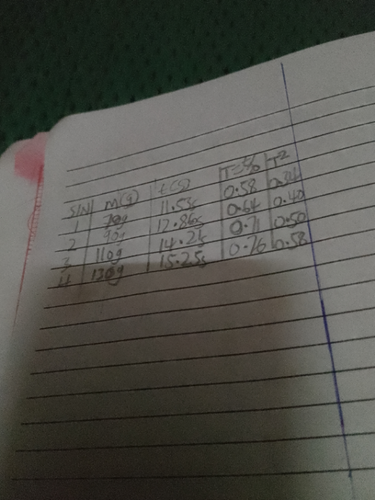 S/N m(g) t(s) T=t/20 T²
1 70g 11.53s 0.58 0.34
2 90g 12.86s 0.64 0.40
3 110g 14.25 0.71 0.50
4 130g 15.25s 0.76 0.58